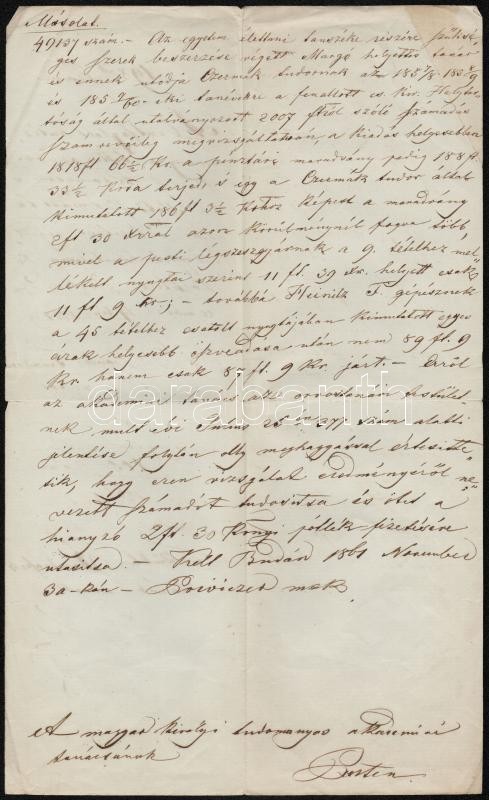 Másolat.
49137 szám. – Az egyetem élettani tanszéke részére szüksé-
ges szerek beszerzése végett Margó helyettes tanár
és ennek utódja Czermák tudornak az 1857/8. 1858/9
és 1859/60-iki tanévekre a fenállott cs. kir. Helytar-
tóság által utalványozott 2007 ftról szóló számadás
számvevőileg megvizsgáltatván, a kiadás helyesebben
1818 ft 66½ kr. a pénztári maradvány pedig 188 ft.
33½ krra terjed és így a Czermák tudor által
kimutatott 186 ft 3½ krhoz képest a maradvány
2 ft 30 krral azon körülménynél fogva több,
mivel a pesti légszeszgyárnak a 9. tételhez mel-
lékelt nyugtái szerint 11 ft. 39 kr. helyett csak
11 ft 9 kr; – továbbá Heinitz F. gépésznek
a 45 tételhez csatolt nyugtájában kimutatott egyes
árak helyesebb összeadása után nem 89 ft. 9
kr. hanem csak 87 ft. 9 kr. járt. – Erről
az akademiai tanács az orvostanári testület-
nek mult évi Julius 26án 37 szám alatti
jelentése folytán oly meghagyással értesitte-
tik, hogy ezen vizsgálat eredményéről ne-
vezett számadót tudósitsa és őtet a
hiányzó 2 ft. 30 krnyi pótlék fizetésére
utasitsa. – Kelt Budán 1861 November
3a-kán –
A magyar királyi tudományos akademiai
tanácsának
darabanth